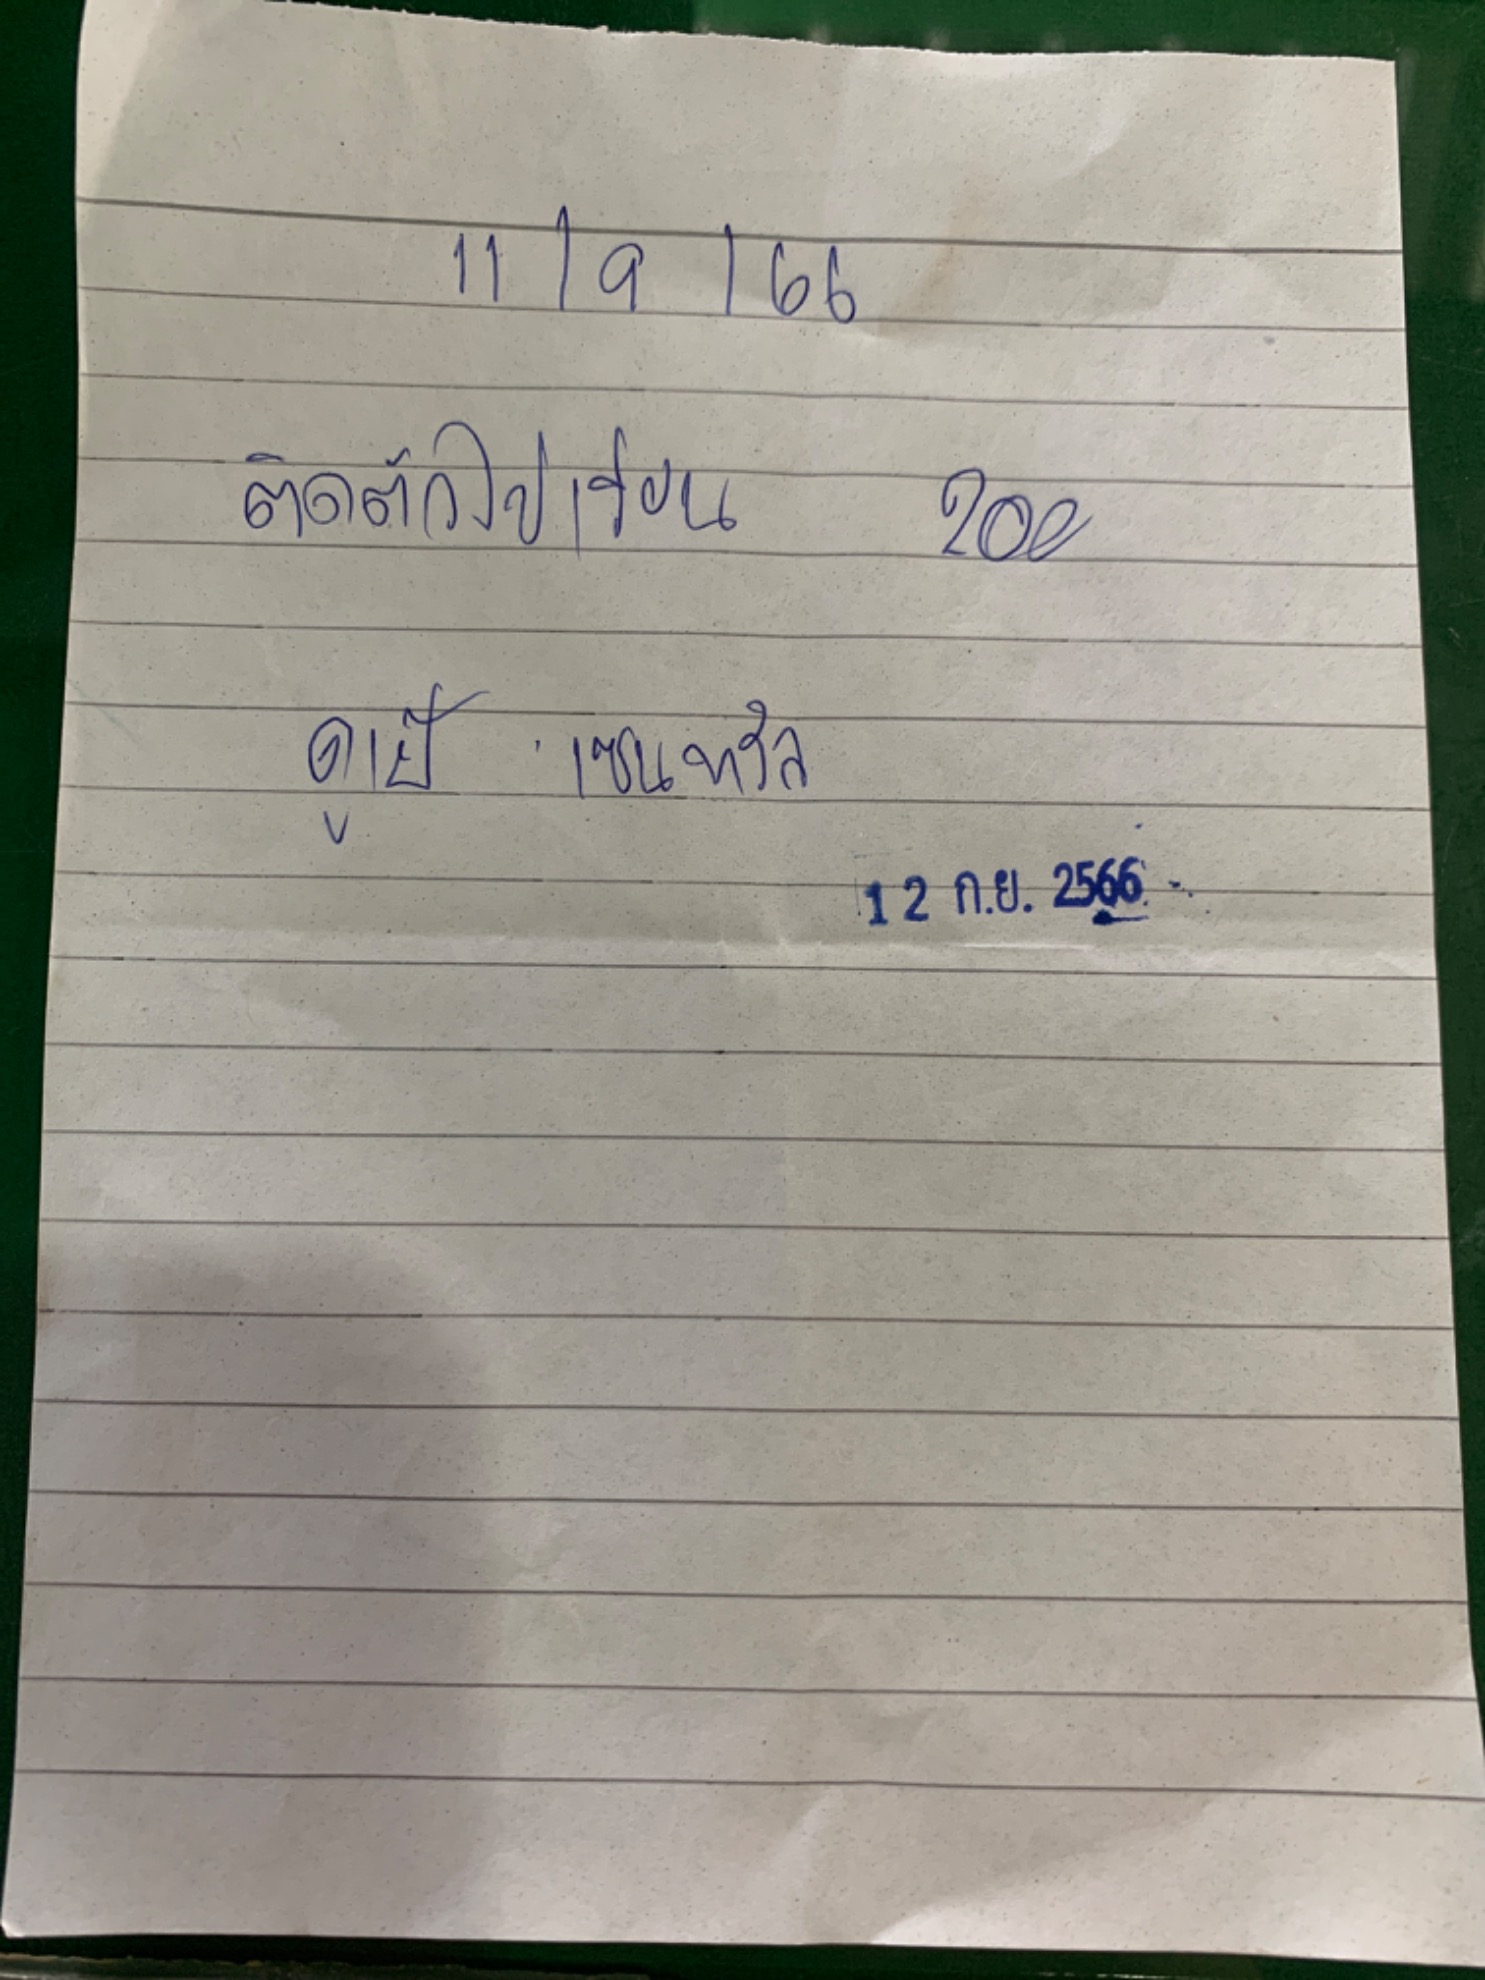 11 / 9 / 66
ติดตัวไปเรียน 200
เซนทรัล
12 ก.ย. 2566